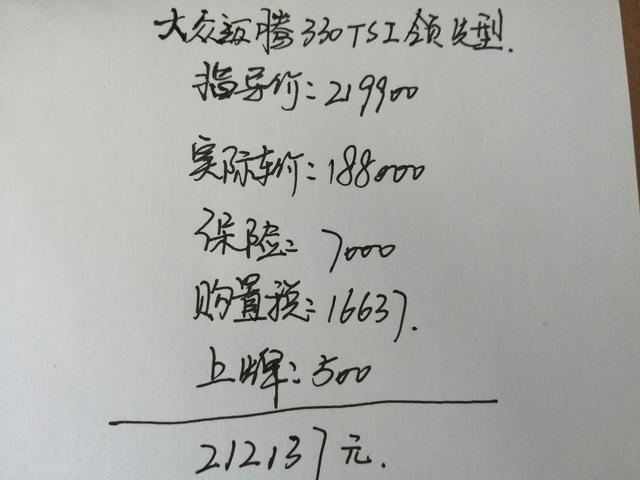 大众迈腾330TSI领先型.
指导价:219900
实际车价:188000
保险:7000
购置税:16637.
上牌:500
212137元.